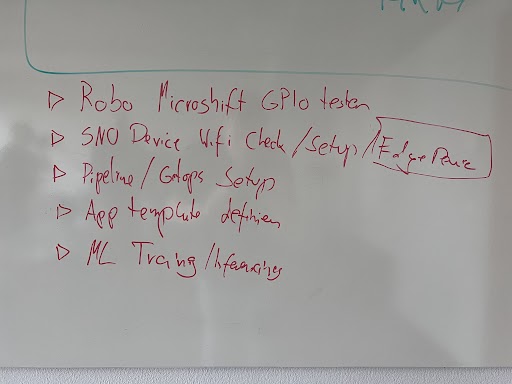 ▷ Robo Microshift GPIO testen
▷ SNO Device Wifi Check / Setup /
▷ Pipeline / Gitops Setup
▷ App template definieren
▷ ML Traing / Inferencing